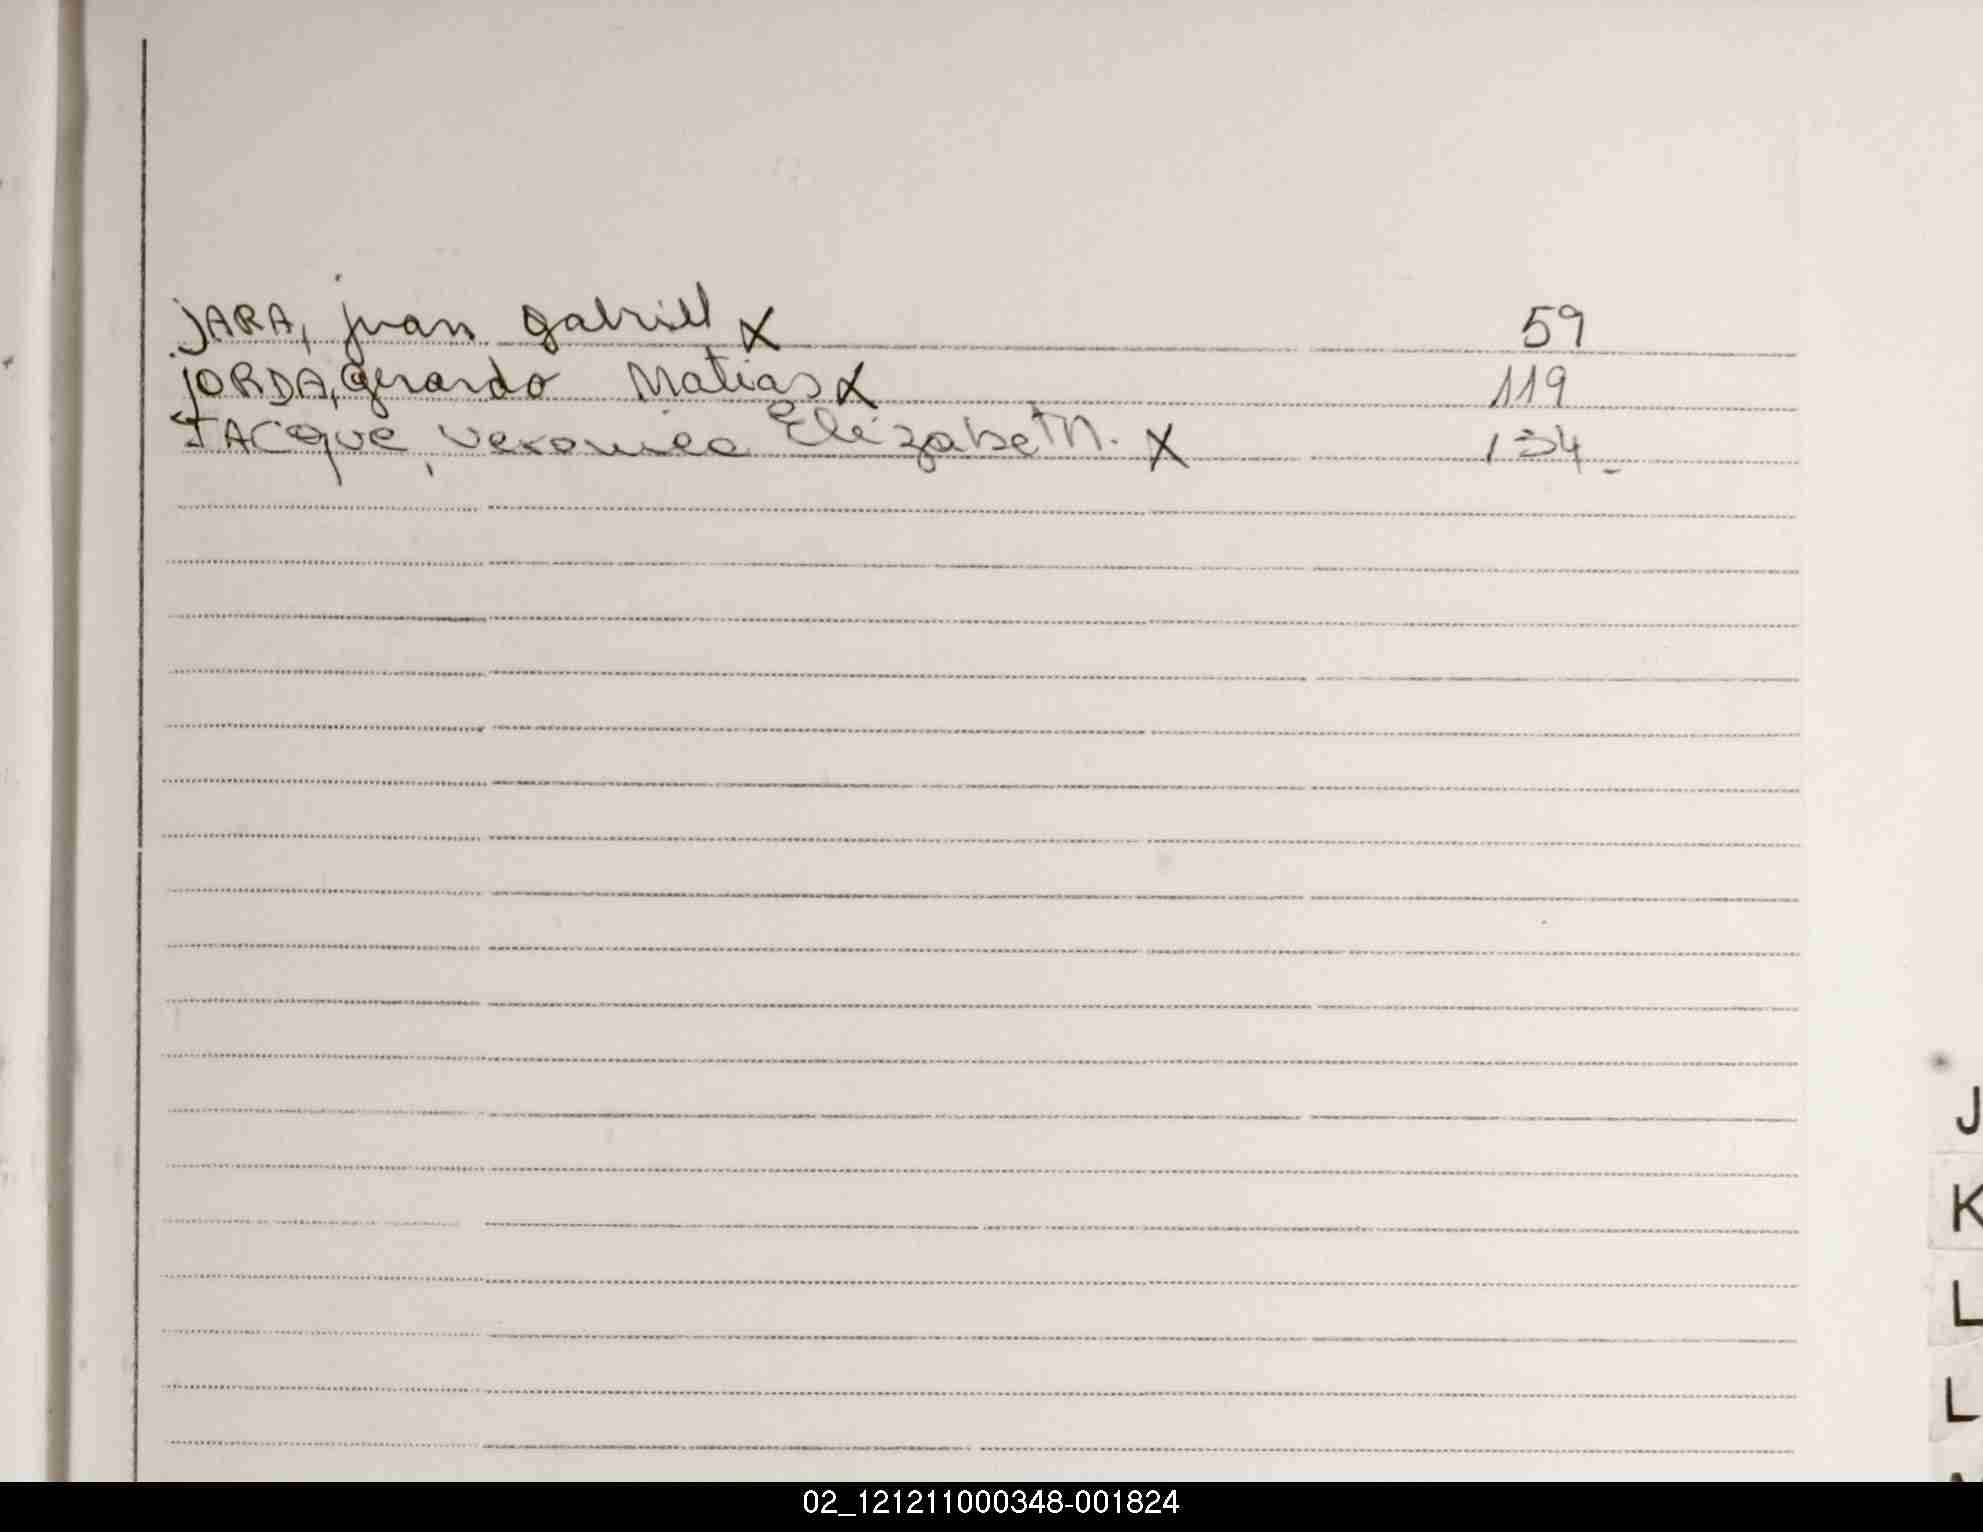 JARA, juan gabriel X 59
JORDA, Gerardo Matias X 119
JACQUE, Veronica Elizabeth. X 134.
J
K
L
L
02_121211000348-001824